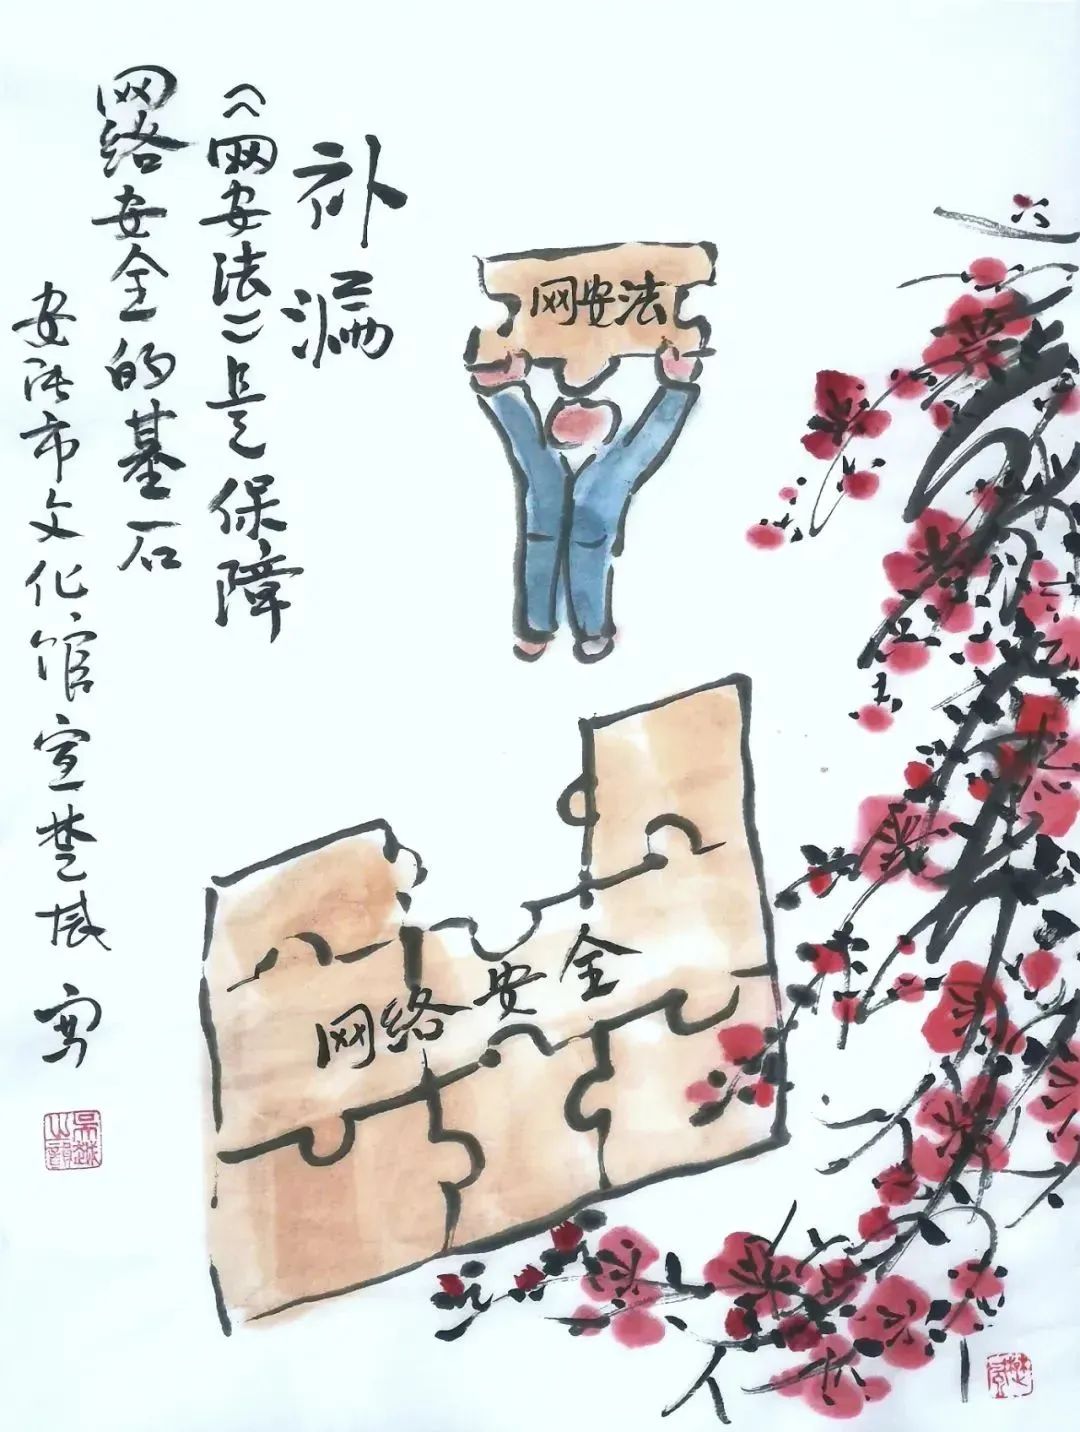 补漏
《网安法》是保障
网络安全的基石
市文化馆宣楚 写
网安法
网络安全